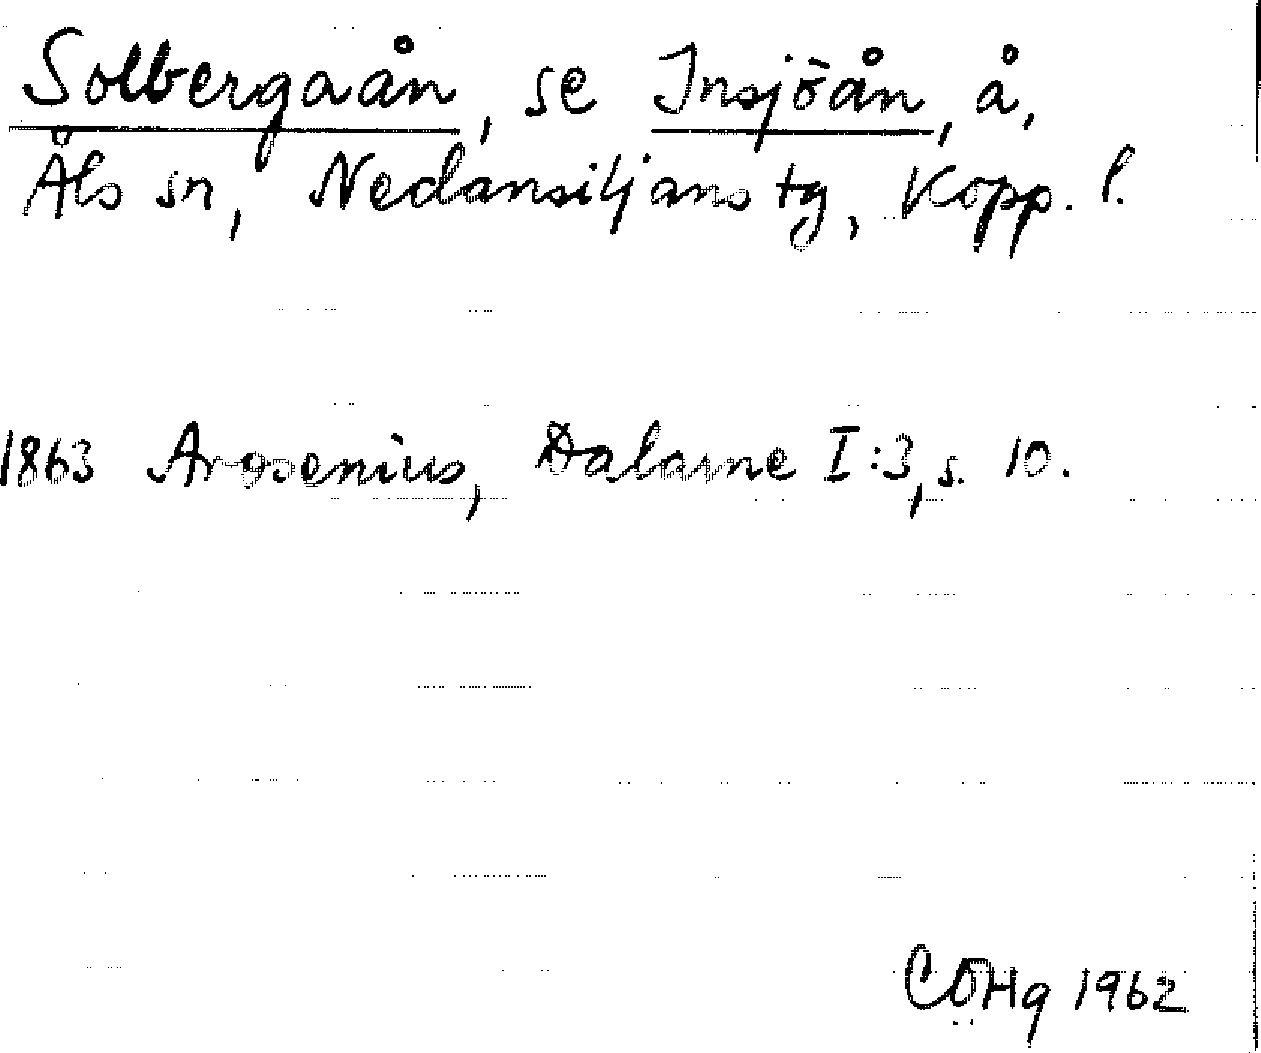 Solbergaån, se Insjöån, å,
Åls sn, Nedansiljans tg, Kopp. l.
1863 Arosenius, Dalarne I:3, s. 10.
CÖHg 1962